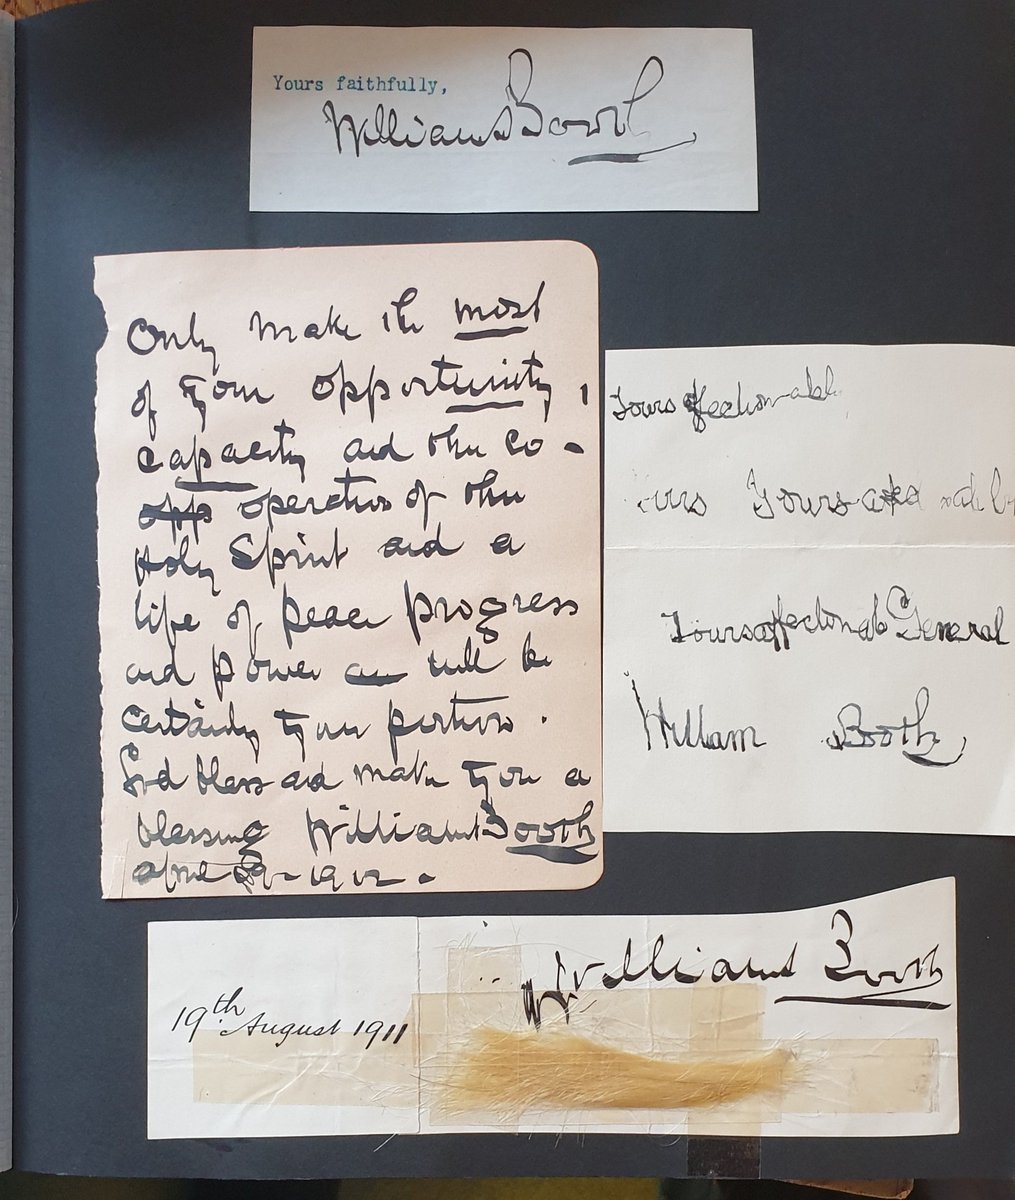 Yours faithfully,
William Booth
Only make the most
of your opportunity,
capacity and the co-
opp operation of the
Holy Spirit and a
life of peace progress
and power an will be
certainly your portion.
God bless and make you a
blessing William Booth
April 1912.
Yours affectionately
Yours
Yours affectionate General
William Booth
19th August 1911
William Booth